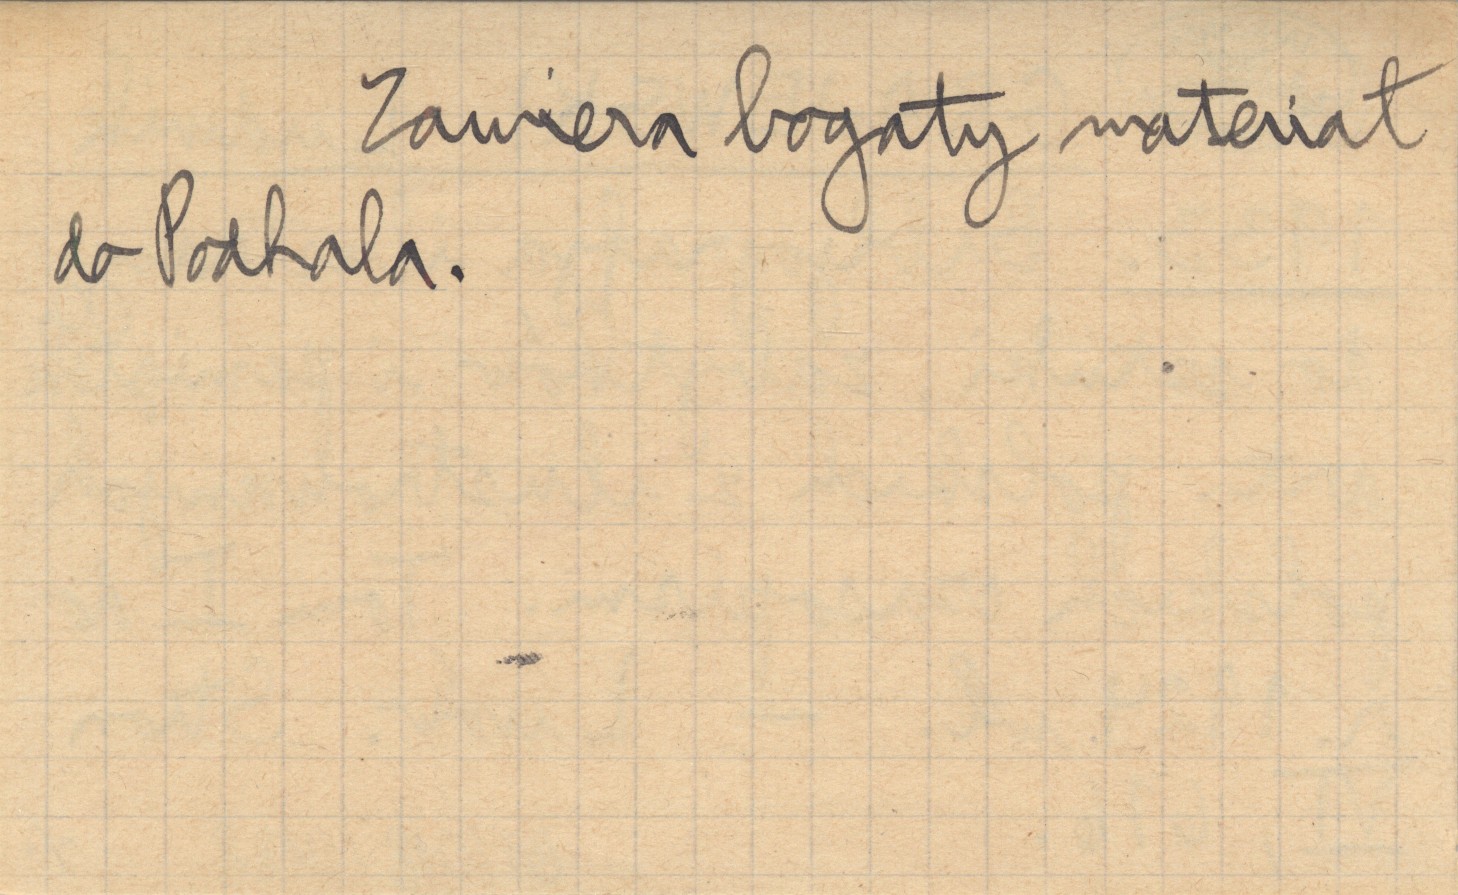 Zawiera bogaty materiał
do Podhala.